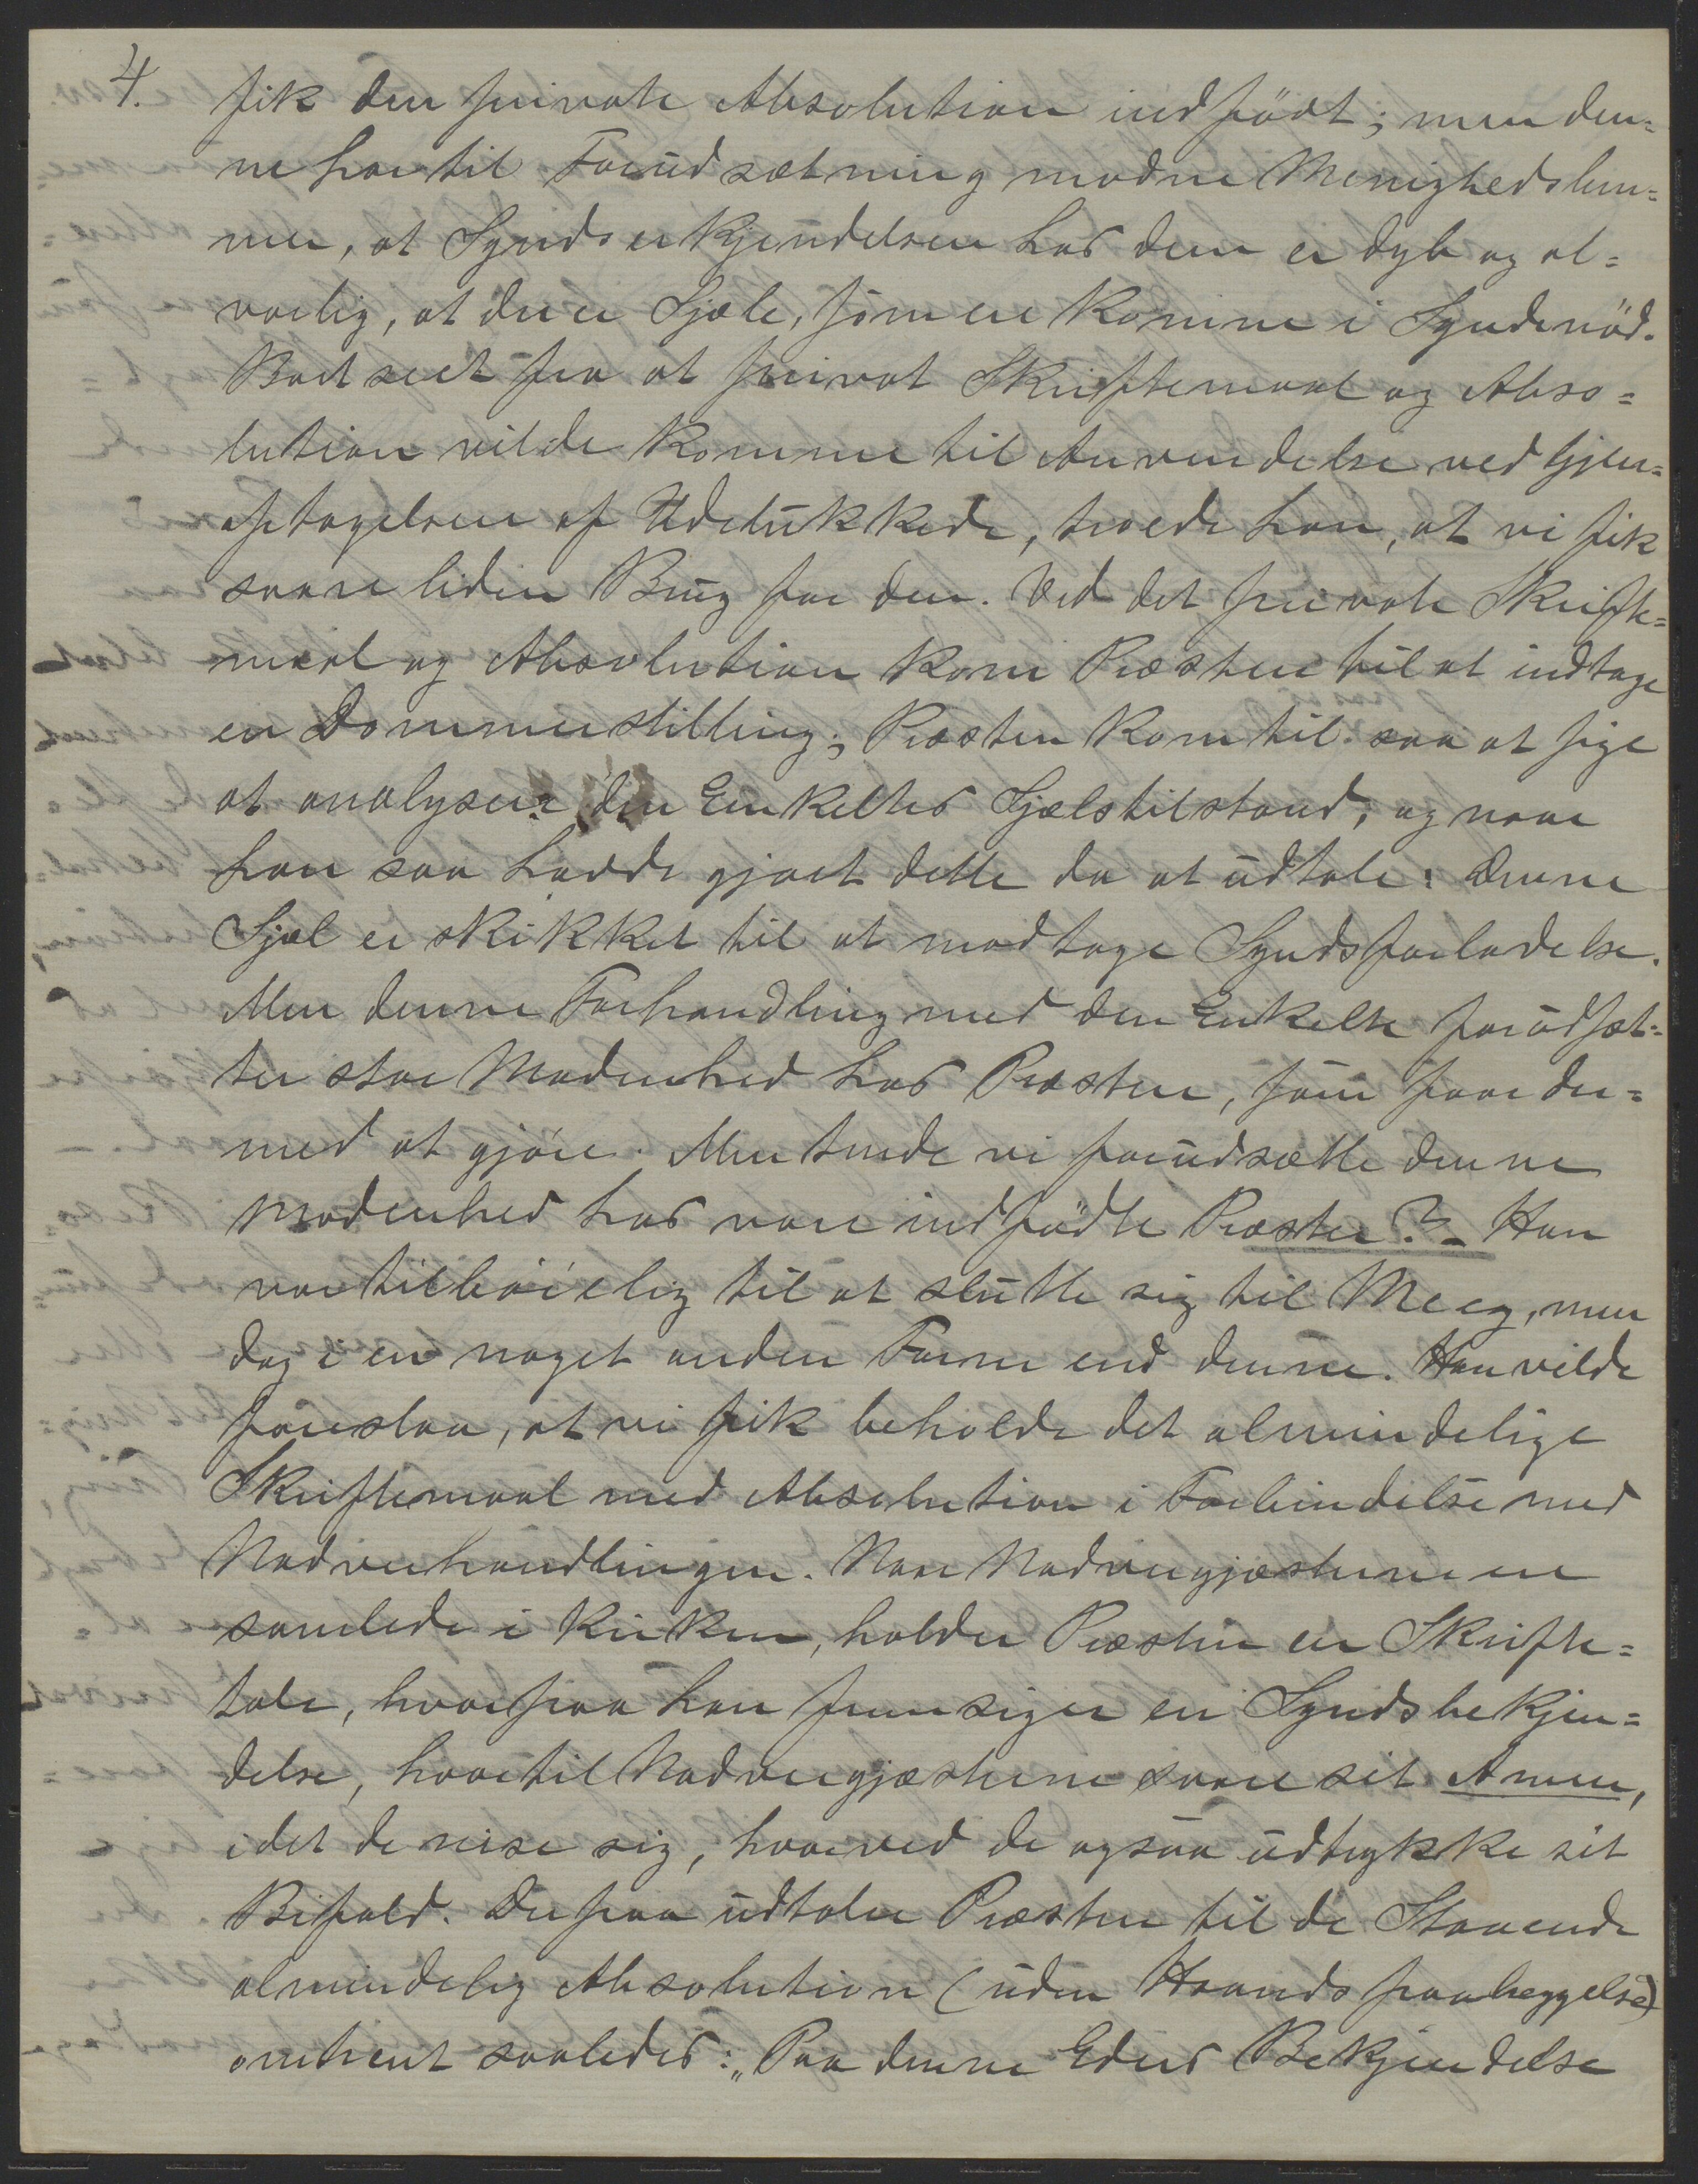 4.
fik den private Absolution indført; men den=
ne har til Forudsætning modne Menighedslem=
mer, at Syndserkjendelsen hos dem er dyb og al=
vorlig, at der er Sjæle, som ere komne i Syndenød.
Bort seet fra at privat Skriftemaal og Abso=
lution vilde komme til Anvendelse ved Gjen=
optagelsen af Udelukkede, troede han, at vi fik
saare liden Brug for den. Ved det private Skrifte=
maal og Absolution kom Præsten til at indtage
en Dommerstilling; Præsten kom til saa at sige
at analysere den Enkeltes Sjælstilstand, og naar
han saa havde gjort dette da at udtale: Denne
Sjæl er skikket til at modtage Syndsforladelse.
Men denne Forhandling med den Enkelte forudsæt=
ter stor Modenhed hos Præsten, som faar der=
med at gjøre. Men turde vi forudsætte denne
Modenhed hos vore indfødte Præster? - Han
var tilbøielig til at slutte sig til Meeg, men
dog i en noget anden Form end denne. Han vilde
foreslaa, at vi fik beholde det almindelige
Skriftemaal med Absolution i Forbindelse med
Nadverhandlingen. Naar Nadvergjæsterne ere
samlede i Kirken, holder Præsten en Skrifte=
tale, hvorpaa han fremsiger en Syndsbekjen=
delse, hvortil Nadvergjæsterne svare sit Amen,
idet de reise sig, hvorved de ogsaa udtrykke sit
Bifald. Derpaa udtaler Præsten til de Staaende
almindelig Absolution (uden Haandspaalæggelse)
omtrent saaledes: „Paa denne Eders Bekjendelse